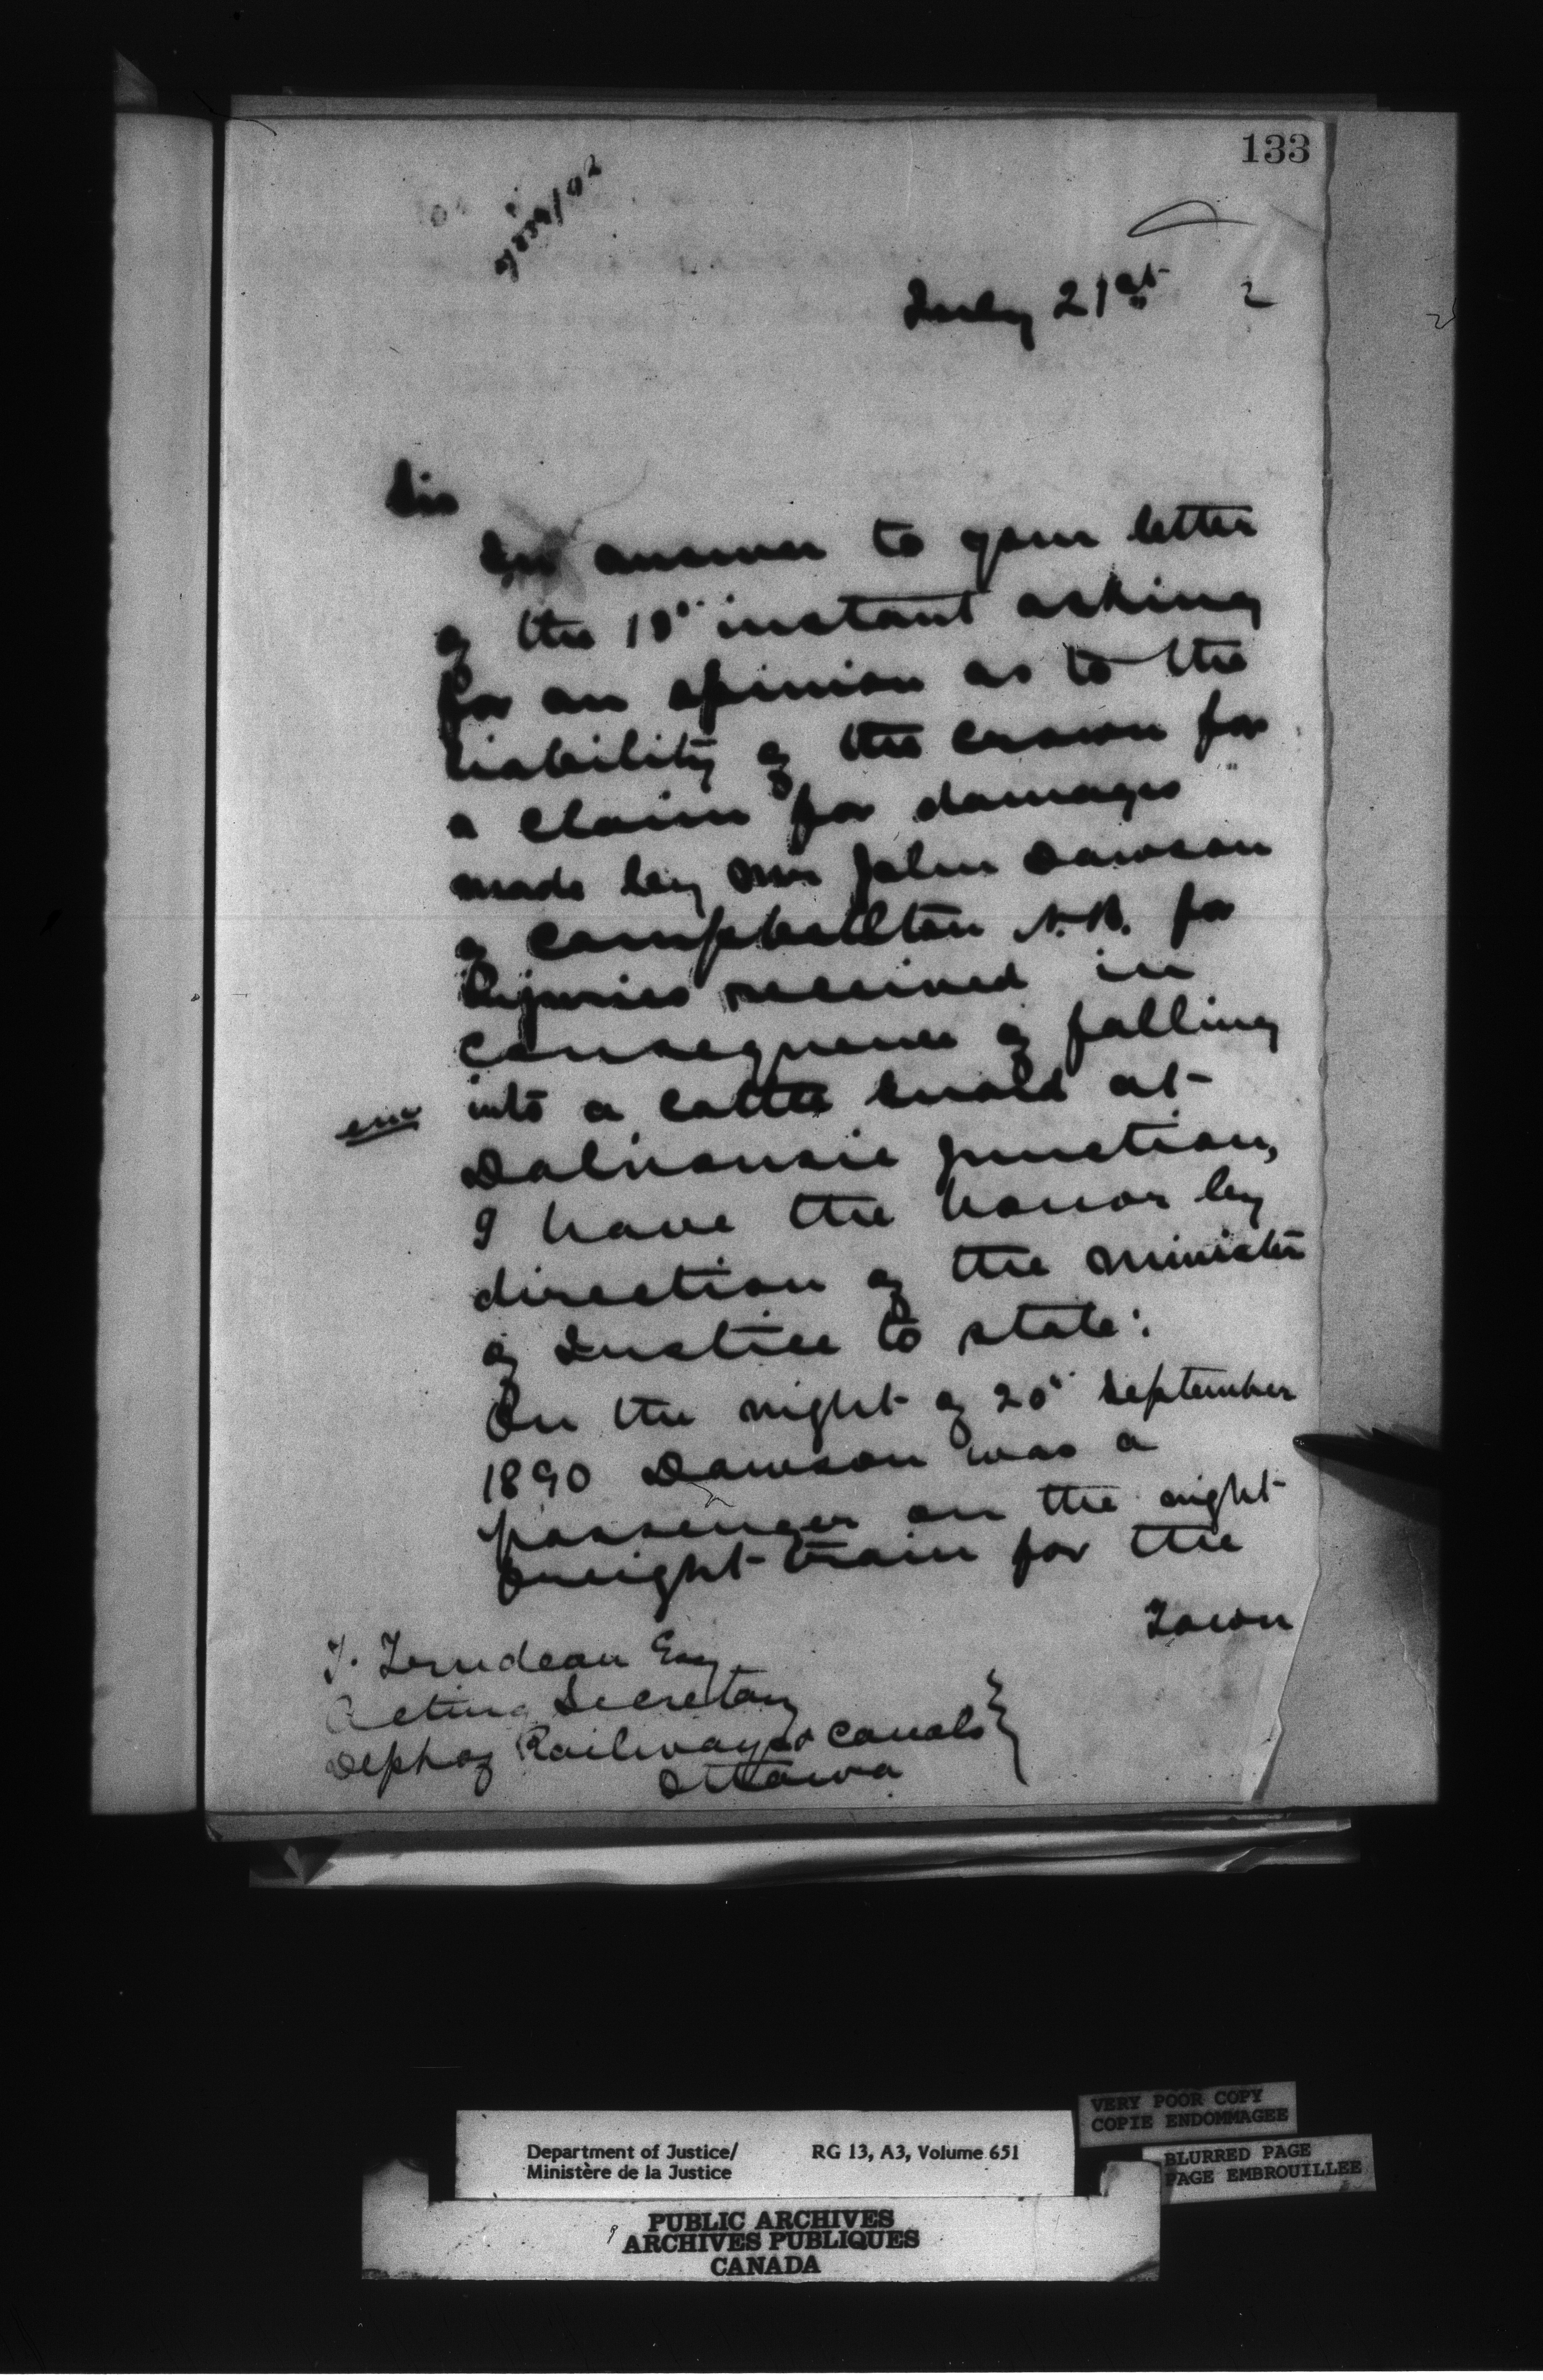 133
July 21st 2
Sir
In answer to your letter
of the 18" instant asking
for an opinion as to the
liability of the crown for
a claim for damages
made by Mr John Dawson
of Campbellton N.B. for
Injuries received in
consequence of falling
into a cattle guard at
Dalhousie Junction,
I have the honor by
direction of the Minister
of Justice to state:
On the night of 20" September
1890 Dawson was a
passenger on the night
freight train for the
Town
T. Trudeau Esq
Acting Secretary
Dept of Railways & Canals
Ottawa
Department of Justice/ RG 13, A3, Volume 651
Ministère de la Justice
VERY POOR COPY
COPIE ENDOMMAGEE
BLURRED PAGE
PAGE EMBROUILLEE
PUBLIC ARCHIVES
ARCHIVES PUBLIQUES
CANADA